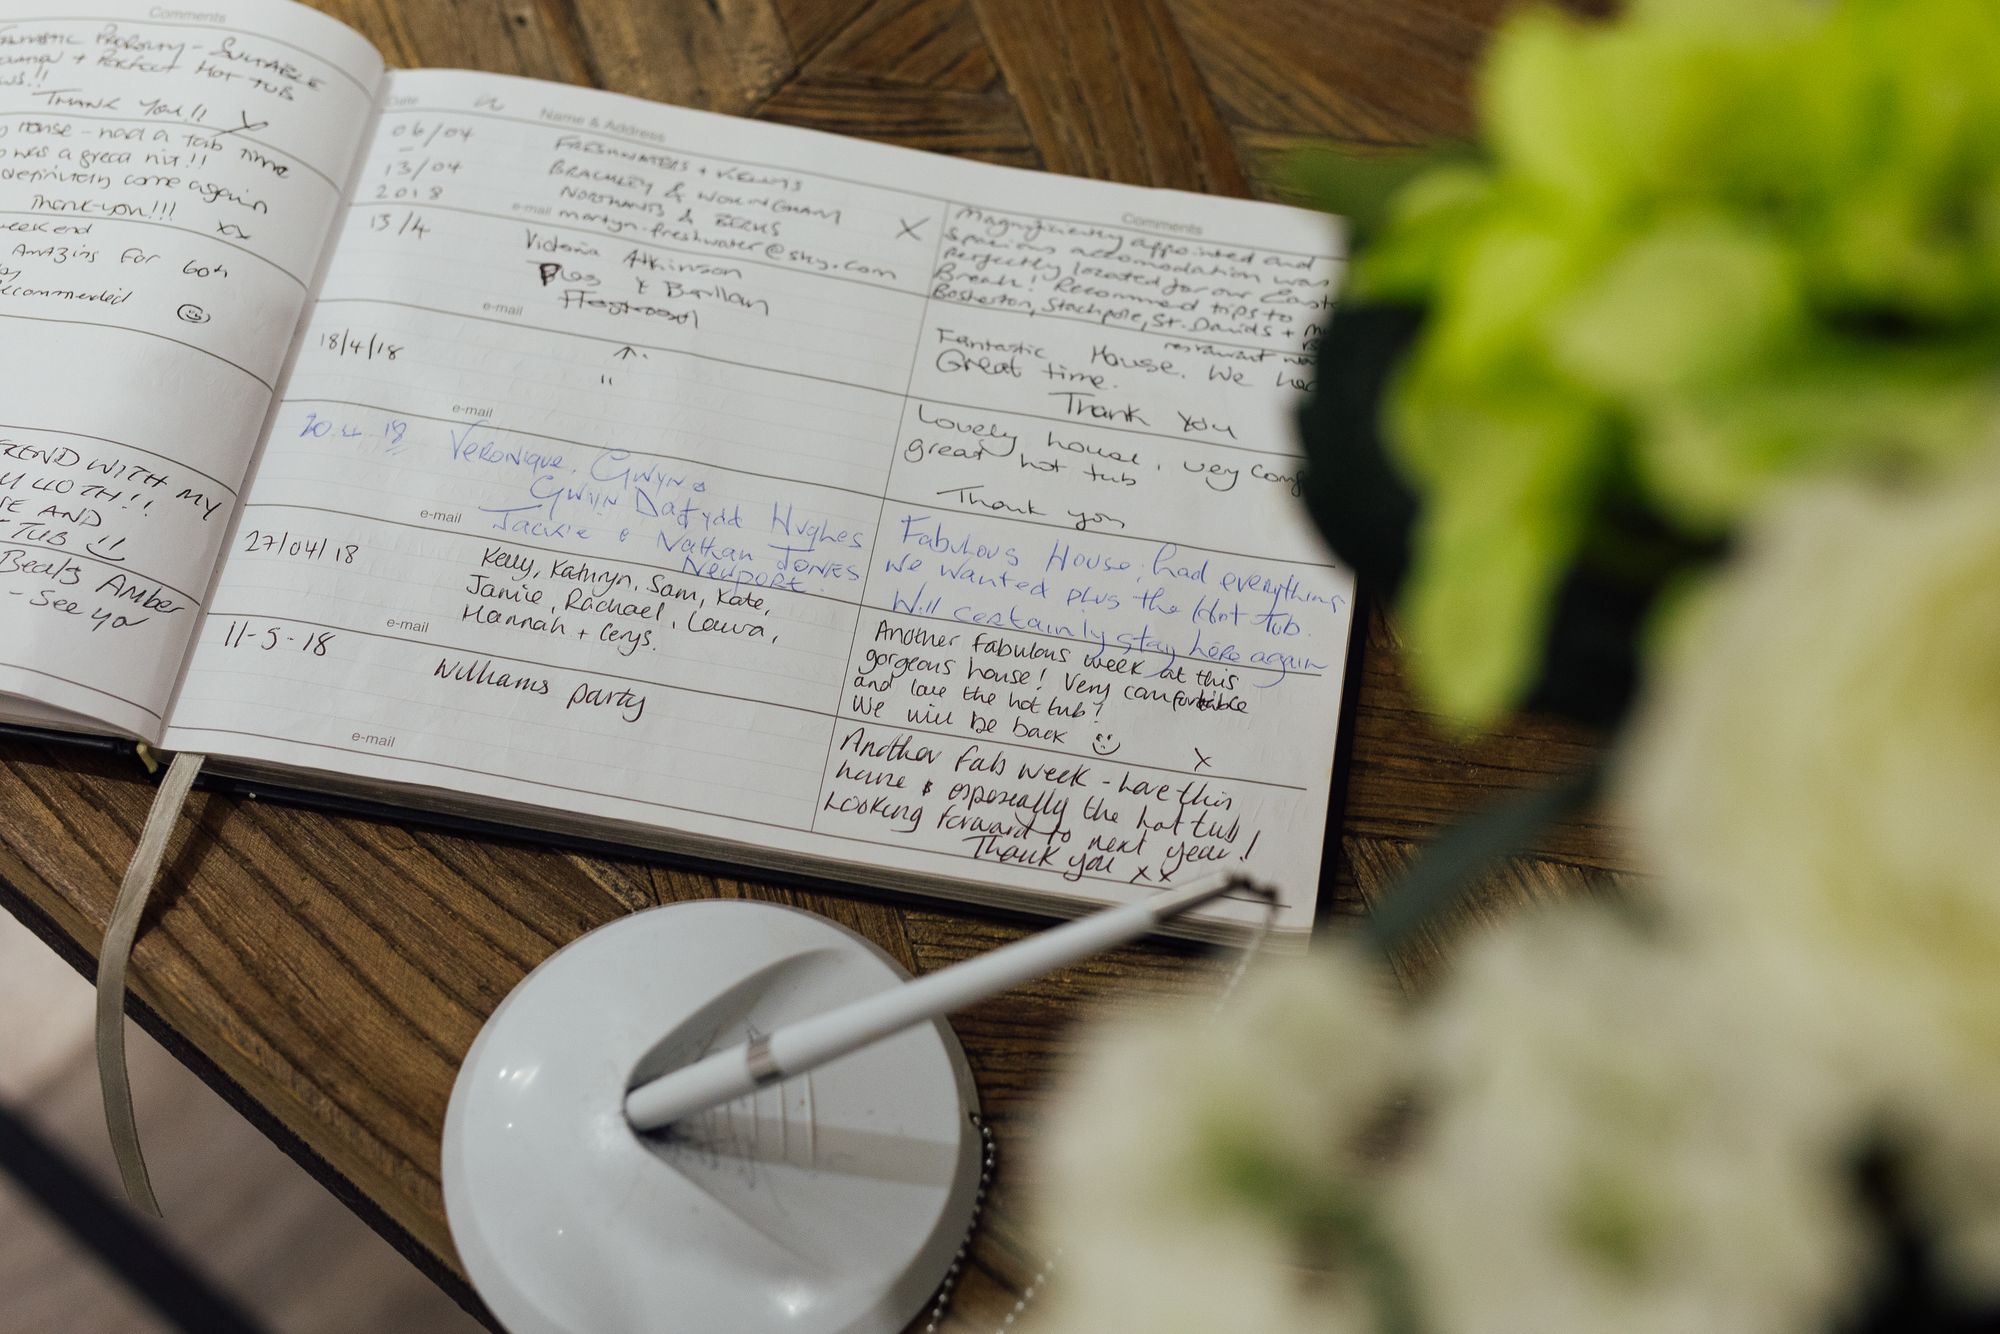 Comments
Property - Suitable
+ Perfect Hot Tub
Thank you!! X
house - had a fab time
was a great hit!!
definitely come again
Thank-you!!! xx
weekend
Amazing for 60th
Recommended
WITH MY
40TH!!
AND
TUB !!
Beals Amber
- See ya
Date
Name & Address
Comments
06/04
-
13/04
2018
FRESHWATERS + KELLYS
BRACKLEY & WOKINGHAM
NORTHANTS & BERKS
e-mail martyn.freshwater@sky.com
X
Magnificently appointed and
spacious accomodation was
perfectly located for our Easter
Break! Recommend trips to
Bosherton, Stackpole, St. Davids +
restaurant
13/4
Victoria Atkinson
e-mail
Fantastic House. We had
Great time.
Thank You
18/4/18
"
e-mail
Lovely house, very
great hot tub
Thank you
20.4.18
Veronique, Gwyn &
Gwyn Dafydd Hughes
e-mail Jackie & Nathan Jones
Newport.
Fabulous House, had everything
we wanted plus the Hot Tub.
Will certainly stay here again
27/04/18
Kelly, Kathryn, Sam, Kate,
Jamie, Rachael, Laura,
Hannah + Cerys.
e-mail
Another fabulous week at this
gorgeous house! Very comfortable
and love the hot tub!
We will be back X
11-5-18
Williams party
e-mail
Another fab week - love this
house & especially the hot tub!
Looking forward to next year!
Thank you xx